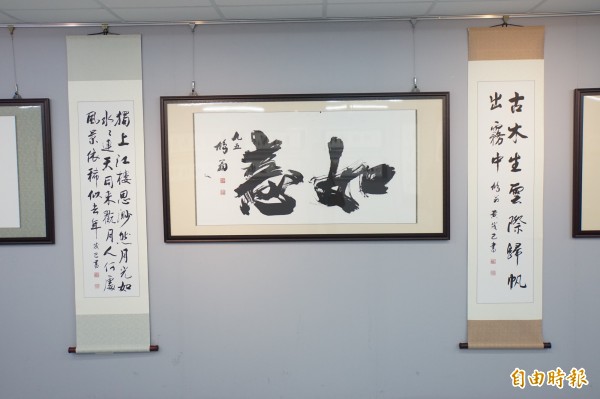 古木生雲際歸帆
出霧中
如意
九五
獨上江楼思渺然月光如
水々連天同来翫月人何處
風景依稀似去年
自由時報